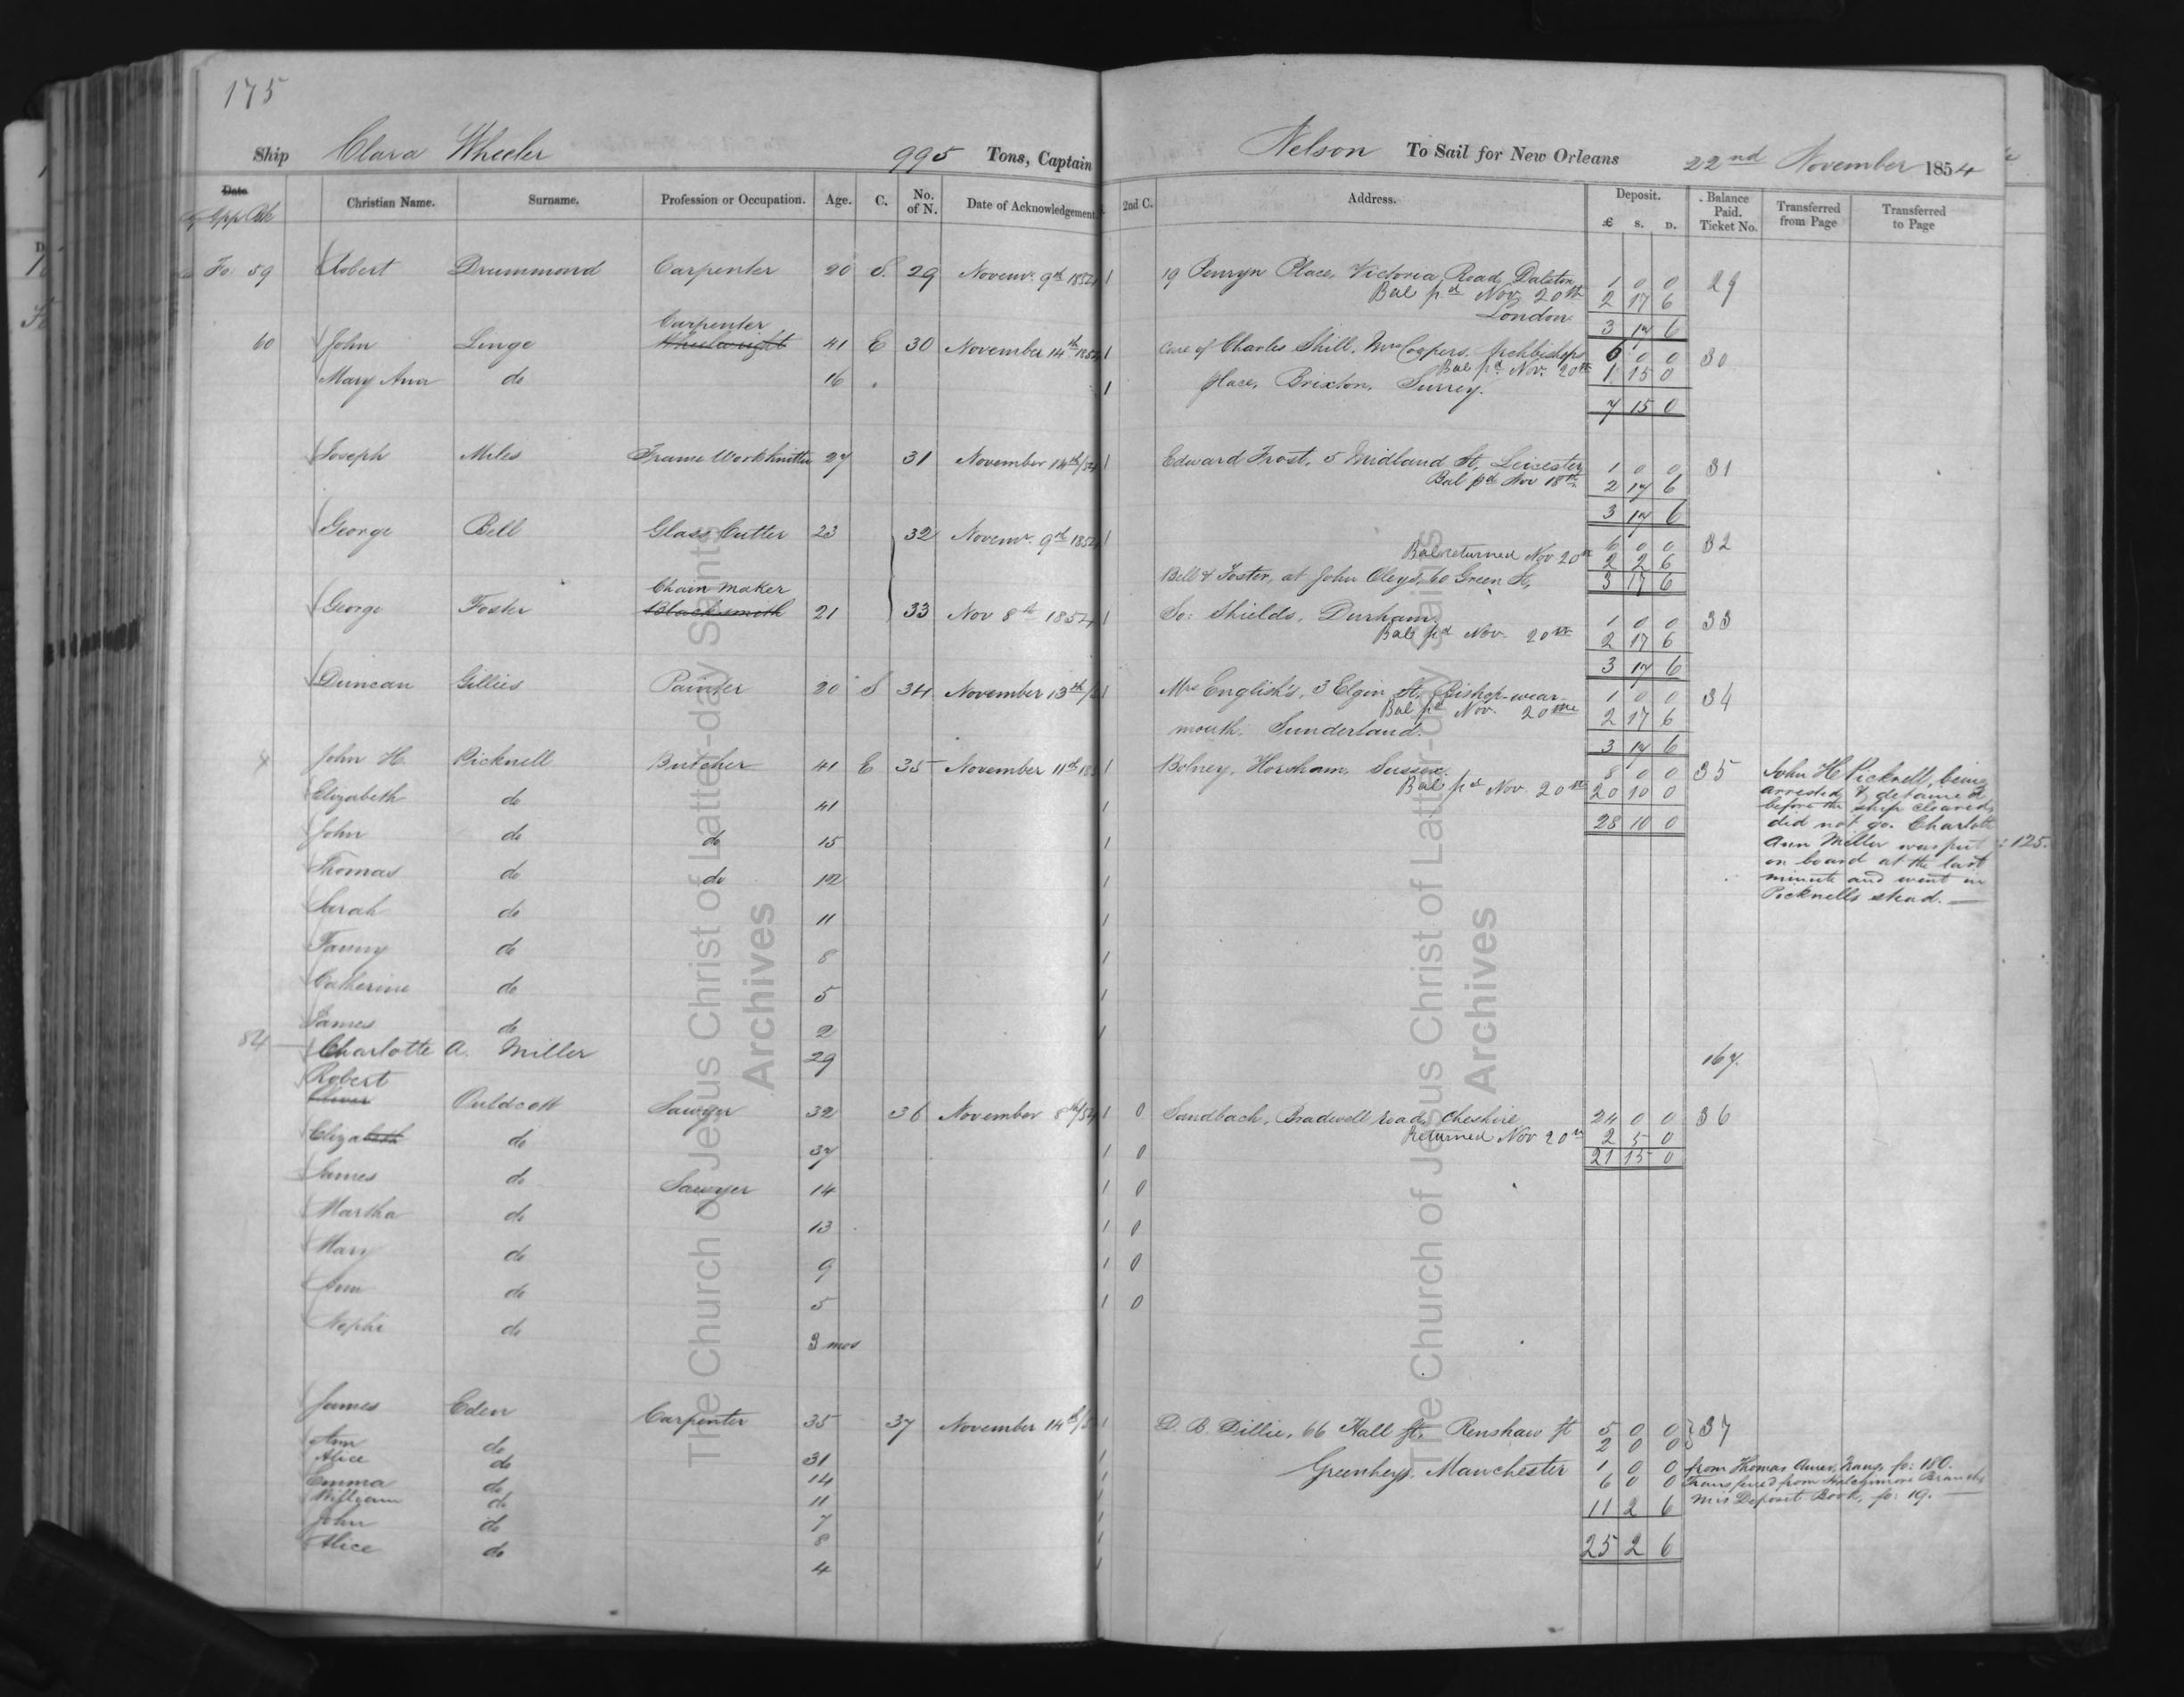 175
Ship Clara Wheeler 995 Tons, Captain Nelson To Sail for New Orleans 22nd November 1854
Date Christian Name. Surname. Profession or Occupation. Age. C. No. of N. Date of Acknowledgement. 2nd C. Address. Deposit. £ S. D. Balance Paid. Ticket No. Transferred from Page Transferred to Page
Fo: 59 Robert Drummond Carpenter 20 S. 29 Novemr. 9th 1854 1 19 Penryn Place, Victoria Road, Dalston 1 0 0 29
Bal pd Nov 20th 2 17 6
London 3 17 6
Carpenter
60 John Linge Wheelwright 41 E 30 November 14th 1854 1 Care of Charles Shill, Mrs Coopers, Archbishops 6 0 0 30
Bal pd Nov. 20th 1 15 0
Mary Ann do 16 1 place, Brixton, Surrey.
7 15 0
Joseph Miles Frame Work knitter 27 31 November 14th/54 1 Edward Frost, 5 Midland St, Leicester 1 0 0 31
Bal pd Nov 18th 2 17 6
3 17 6
George Bell Glass Cutter 23 32 Novemr. 9th 1854 1 6 0 0 32
Bal returned Nov 20th 2 2 6
Bell & Foster, at John Cleys, 60 Green St, 3 17 6
Chain maker
George Foster Blacksmith 21 33 Nov 8th 1854 1 So: Shields, Durham. 1 0 0 33
Bal pd Nov. 20th 2 17 6
3 17 6
Duncan Gillies Painter 20 S 34 November 13th 1 Mrs English's, 3 Elgin St, Bishop-wear- 1 0 0 34
Bal pd Nov. 20th 2 17 6
mouth. Sunderland.
3 17 6
John H. Picknell Butcher 41 E 35 November 11th 185 1 Bolney, Horsham, Sussex. 8 0 0 35 John H Picknell, being
Bal pd Nov. 20th 20 10 0 arrested & detained
Elizabeth do 41 1 before the ship cleared,
28 10 0 did not go. Charlotte
John do do 15 1 Ann Miller was put : 125.
on board at the last
Thomas do do 12 1 minute and went in
Picknells stead.
Sarah do 11 1
Fanny do 8 1
Catherine do 5 1
James do 2 1
84 Charlotte A. Miller 29 167.
Robert
Oliver Ouldcott Sawyer 32 36 November 8th/54 1 0 Sandbach, Bradwell Road, Cheshire 24 0 0 36
Returned Nov 20th 2 5 0
Elizabeth do 37 1 0 21 15 0
James do Sawyer 14 1 0
Martha do 13 1 0
Mary do 9 1 0
Ann do 5 1 0
Nephi do 3 mos
James Eden Carpenter 35 37 November 14th 1 D. B. Dillie, 66 Hall St, Renshaw St 5 0 0 37
Ann do 31 1 2 0 0
Alice do 14 1 Greenheys, Manchester 1 0 0 from Thomas fo: 180.
Emma do 11 1 6 0 0 Transferred from Branch
William do 7 1 11 2 6 mis Deposit Book, fo: 19.
John do 8 1
Alice do 4 1 25 2 6
The Church of Jesus Christ of Latter-day Saints
Archives
The Church of Jesus Christ of Latter-day Saints
Archives